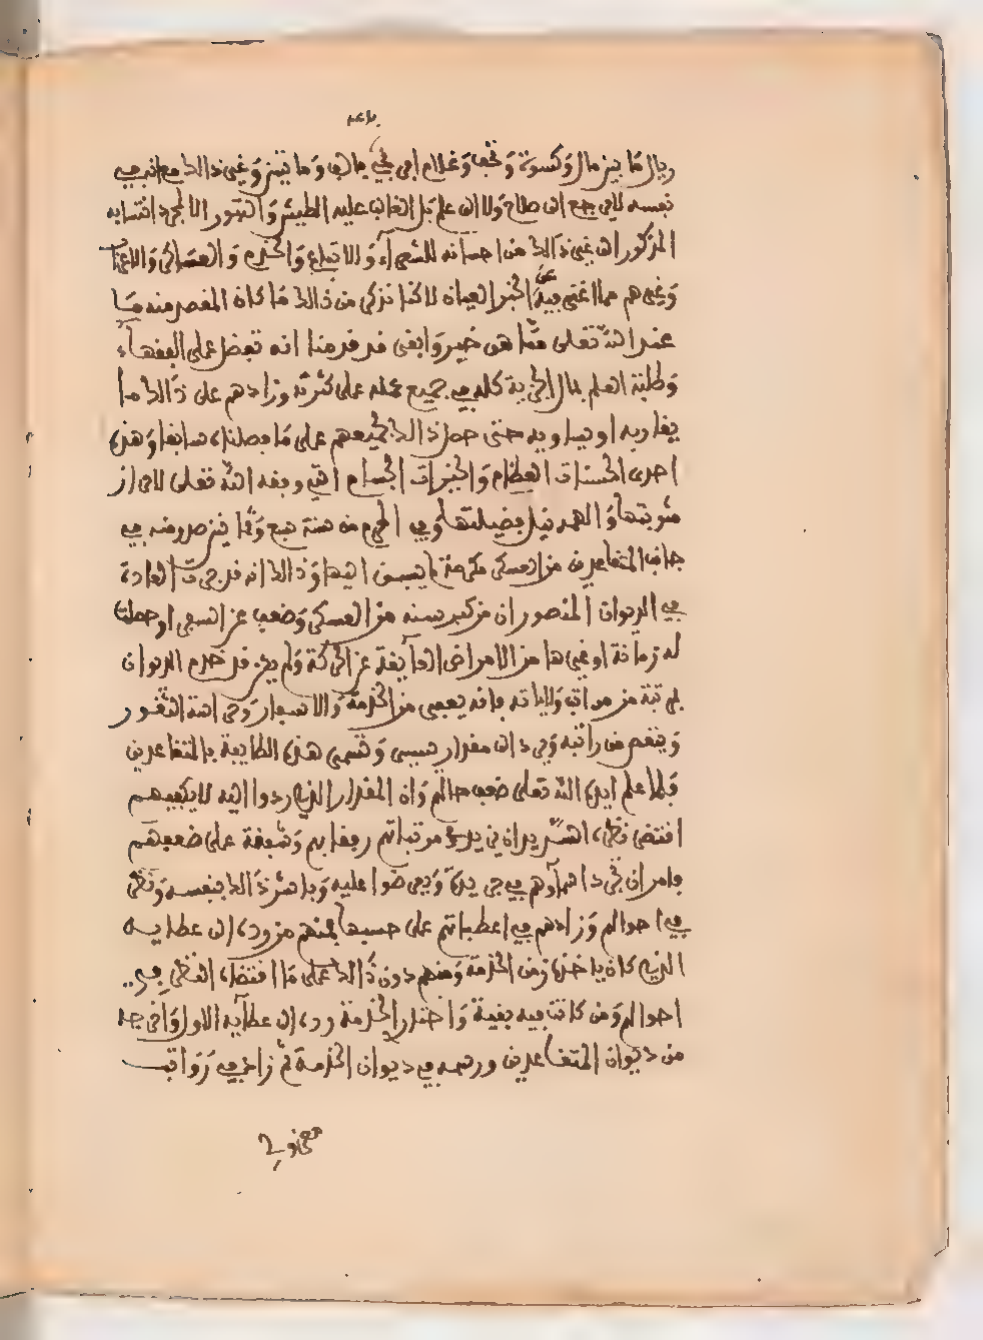 ريال ما بين مال وكسوة وتحف وغلام وما بين وغير ذالك مع انه في
نفسه لا يرجع الى صلاح ولا الى علم بل الغالب عليه الطيش والتهور الا لمجرد انتسابه
المذكور الى غير ذالك من احسانه للشعراء والاتباع والخدم
وغيرهم مما اغنى فيه عن الخبر العيان لاكنا نزكي من ذالك ما كان المقصد منه ما
عند الله تعلى مما هو خير وابقى قد قدمنا انه تفضل على الفقهاء
وطلبة العلم بمال الجزية كله في جميع عمله على كثرته وزادهم على ذالك ما
يقاربه او يساويه حتى حصل ذالك لجميعهم على ما فصلناه سابقا وهذه
احدى الحسنات العظام والخيرات الجسام التي وفقه الله تعلى لاحراز
مثوبتها والهمه نيل فضيلتها وفي المحرم من سنة سبع وثمانين صدر منه في
جانب المتقاعدين من العسكر مكرمة لم يسبق اليها وذالك انه قد جرت العادة
في الديوان المنصور ان من كبر سنه من العسكر وضعف عن السعي او حصلت
له زمانة او غيرها من الامراض العايقة عن الحركة ولم يكن قد خدم الديوان
بمرتبة من مراتب ولاياته فانه يعفى من الخدمة والاسفار وحراسة الثغور
وينقص من راتبه ويرد الى مقدار يسير وتسمى هذه الطايفة بالمتقاعدين
ولما علم ايده الله تعلى ضعف حالهم وان المقدار الذي ردوا اليه لا يكفيهم
اقتضى نظره السديد ان يزيد في مرتباتهم رفقا بهم وشفقة على ضعفهم
فامر ان تجرد اسمآؤهم في جريدة ويعرضوا عليه وباشر ذالك بنفسه ونظر
في احوالهم وزادهم في اعطياتهم على حسبها فمنهم من رده الى عطايه
الذي كان ياخذه زمن الخدمة ومنهم دون ذالك على ما اقتضاه النظر في
احوالهم ومن كانت فيه بقية واختار الخدمة رده الى عطآيه الاول واخرجه
من ديوان المتقاعدين ورسمه في ديوان الخدمة ثم زاد في رواتب